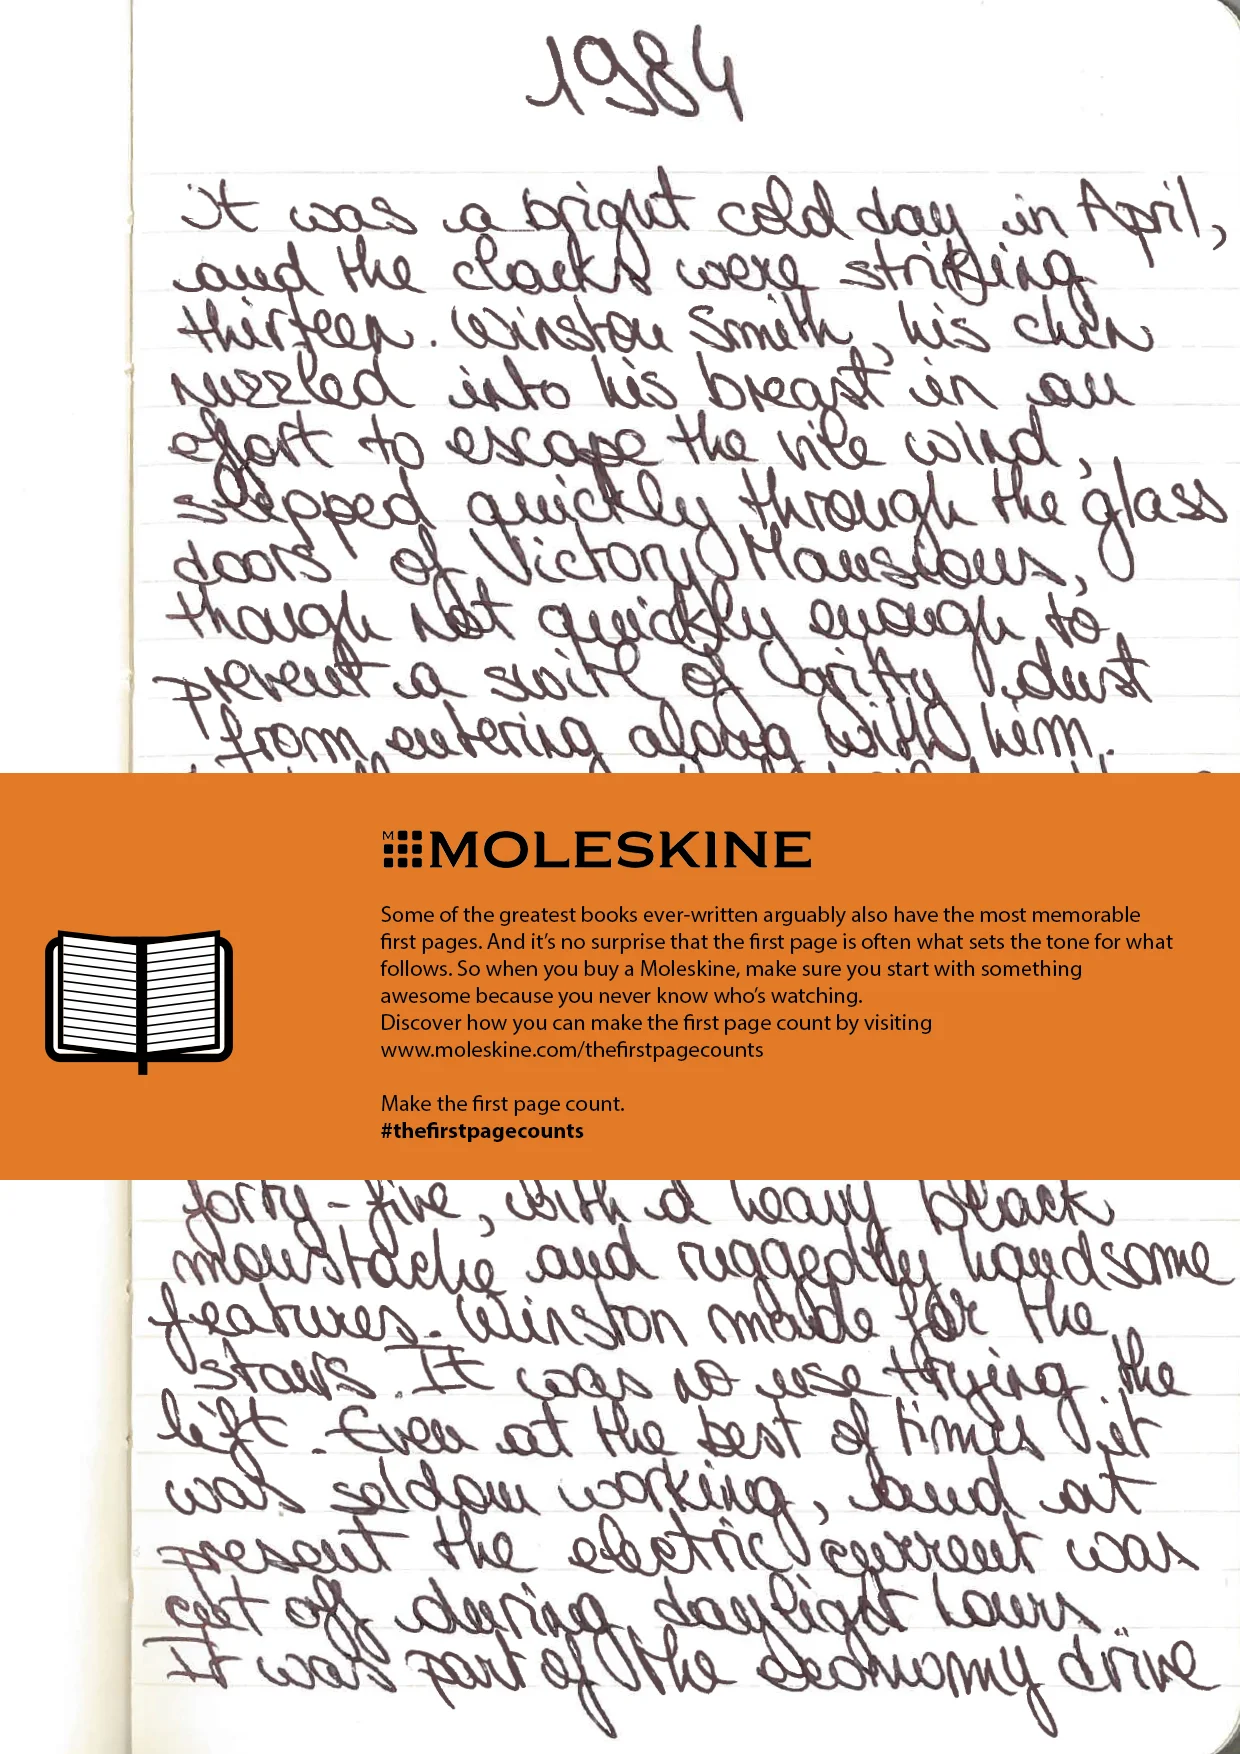 1984
it was a bright cold day in April,
and the clocks were striking
thirteen. Winston Smith, his chin
nuzzled into his breast in an
effort to escape the vile wind,
slipped quickly through the glass
doors of Victory Mansions,
though not quickly enough to
prevent a swirl of gritty dust
from entering along with him.
M MOLESKINE
Some of the greatest books ever-written arguably also have the most memorable
first pages. And it's no surprise that the first page is often what sets the tone for what
follows. So when you buy a Moleskine, make sure you start with something
awesome because you never know who's watching.
Discover how you can make the first page count by visiting
www.moleskine.com/thefirstpagecounts
Make the first page count.
#thefirstpagecounts
forty-five, with a heavy black
moustache and ruggedly handsome
features. Winston made for the
stairs. It was no use trying the
lift. Even at the best of times it
was seldom working, and at
present the electric current was
cut off during daylight hours.
It was part of the economy drive